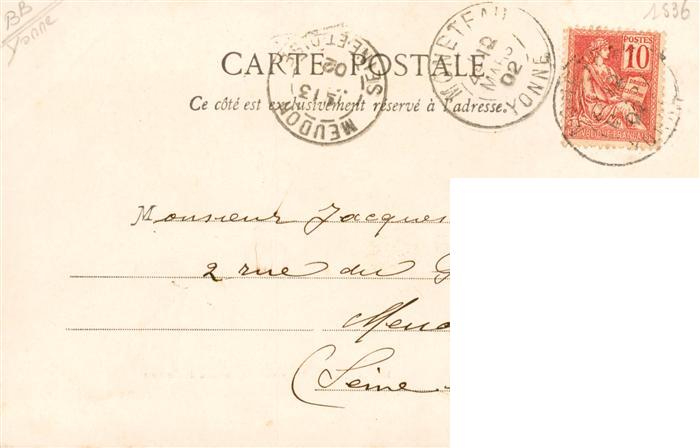 BB
Yonne
1836
CARTE POSTALE
Ce côté est exclusivement réservé à l'adresse.
MEUDON
SEINE-ET-OISE
13
02
MONETEAU
12
MARS
02
YONNE
POSTES
10
REPUBLIQUE FRANÇAISE
Monsieur Jacques
2 rue du
(Seine